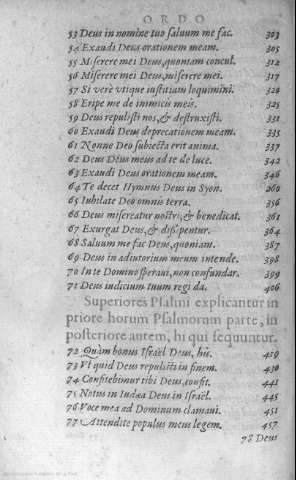 ORDO
53 Deus in nomine tuo saluum me fac. 303
54 Exaudi Deus orationem meam. 305
55 Miserere mei Deus, quoniam concul. 312
56 Miserere mei Deus, miserere mei. 317
57 Si verè vtique iustitiam loquimini. 320
58 Eripe me de inimicis meis. 325
59 Deus repulisti nos, & destruxisti. 331
60 Exaudi Deus deprecationem meam. 335
61 Nonne Deo subiecta erit anima. 337
62 Deus Deus meus ad te de luce. 342
63 Exaudi Deus orationem meam. 346
64 Te decet Hymnus Deus in Syon. 260
65 Iubilate Deo omnis terra. 356
66 Deus misereatur nostri, & benedicat. 361
67 Exurgat Deus, & dissipentur. 364
68 Saluum me fac Deus, quoniam. 387
69 Deus in adiutorium meum intende. 398
70 In te Domine speraui, non confundar. 399
71 Deus iudicium tuum regi da. 406
Superiores Psalmi explicantur in
priore horum Psalmorum parte, in
posteriore autem, hi qui sequuntur.
72 Quàm bonus Israël Deus, his. 419
73 Vt quid Deus repulisti in finem. 430
74 Confitebimur tibi Deus, confit. 441
75 Notus in Iudæa Deus in Israël. 445
76 Voce mea ad Dominum clamaui. 451
77 Attendite populus meus legem. 457
78 Deus